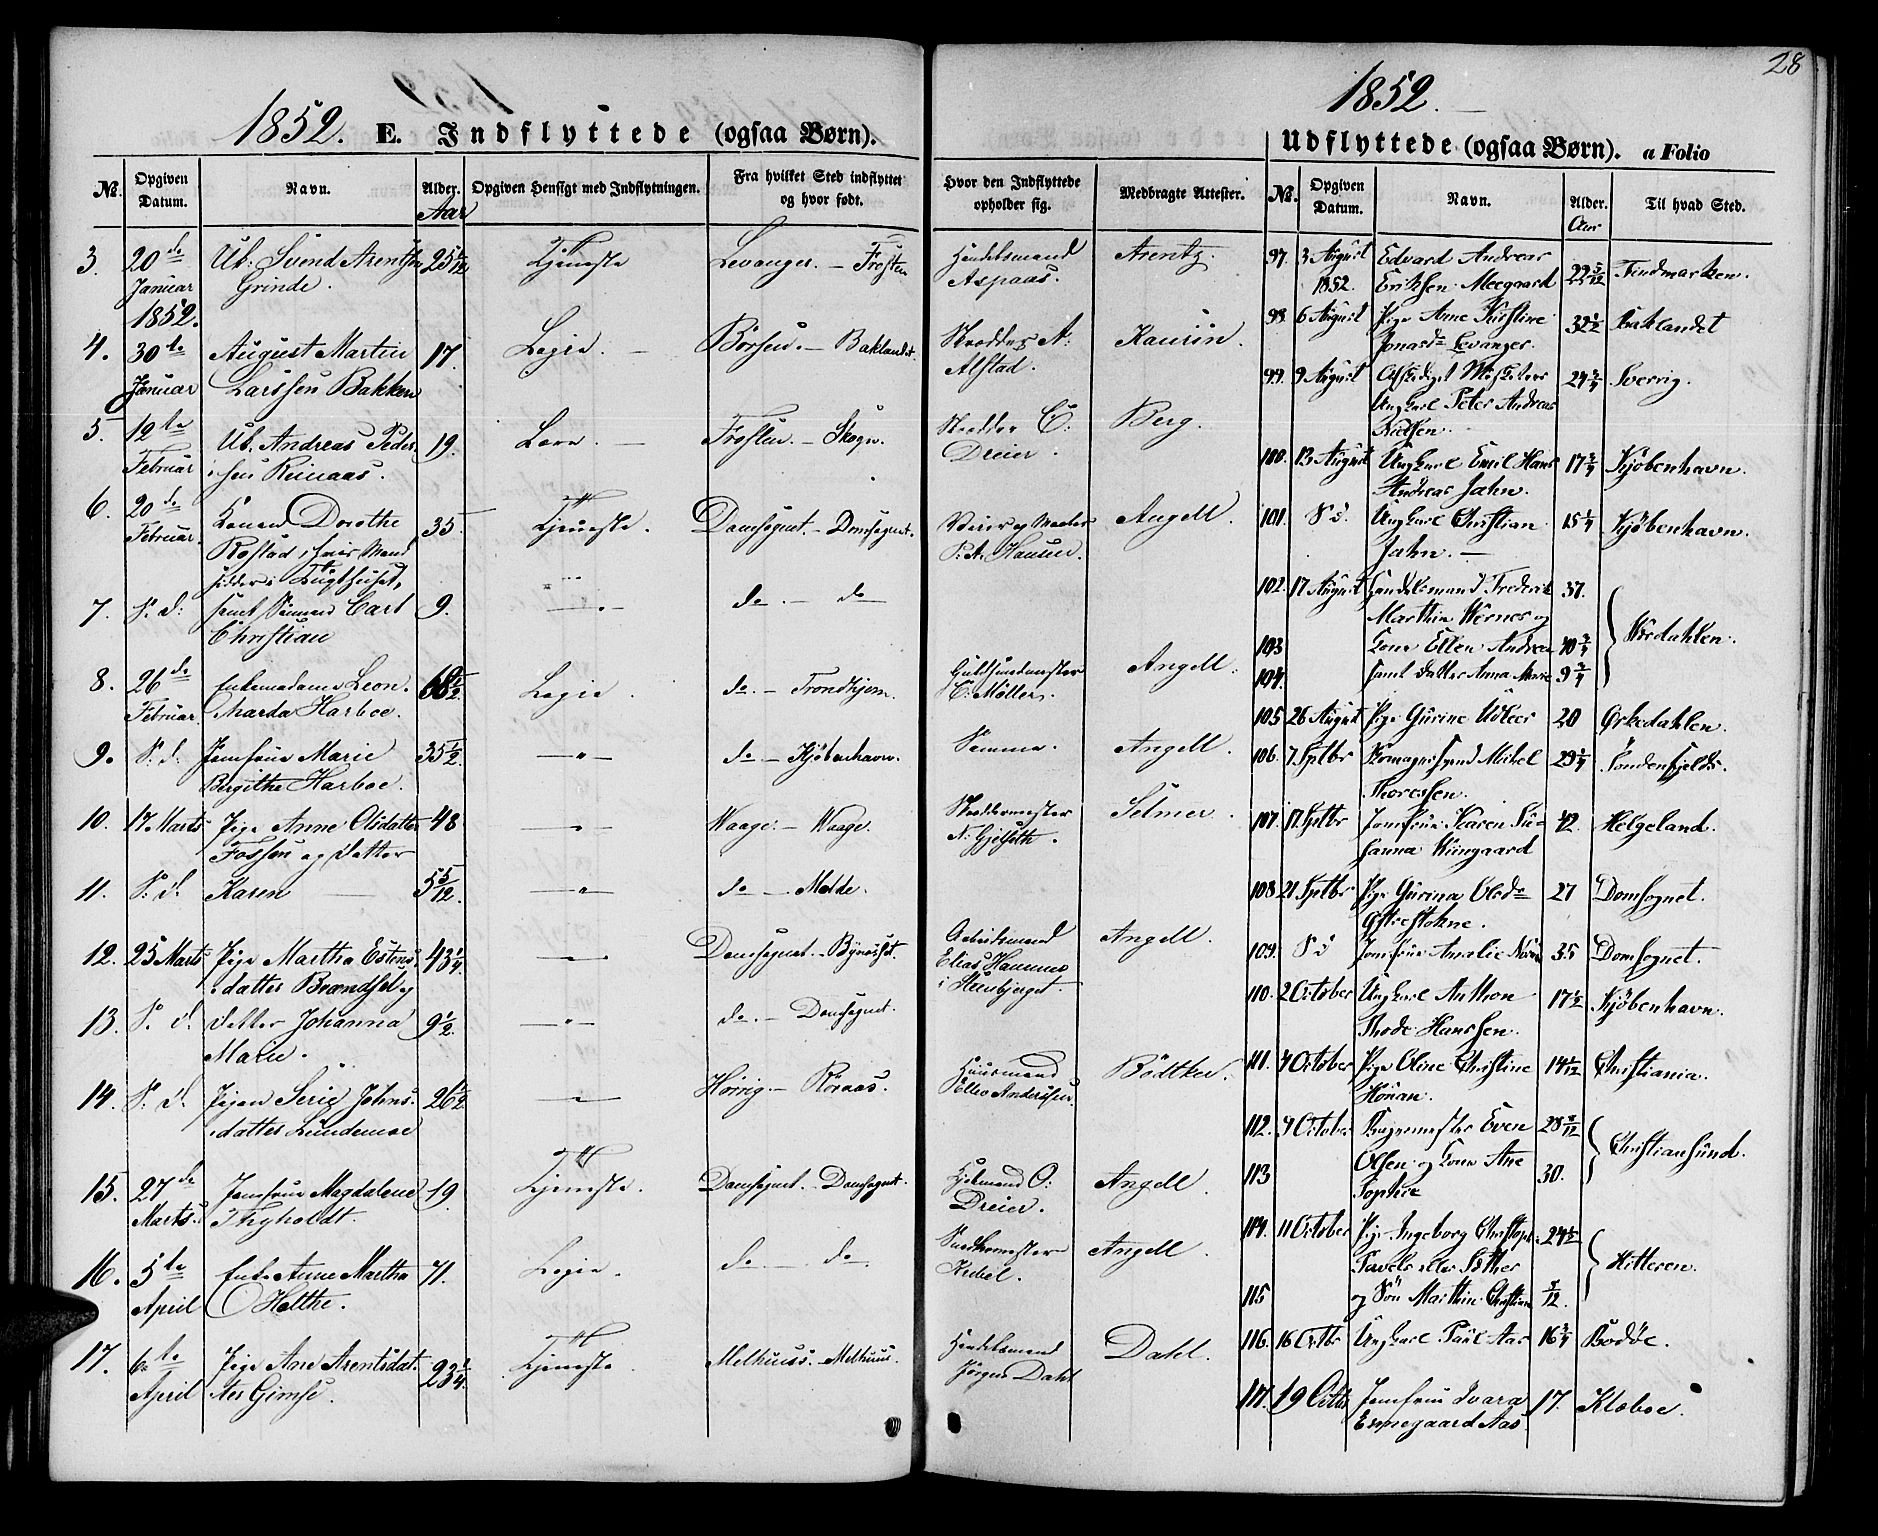 28
1852. E. Indflyttede (ogsaa Børn).
№. Opgiven Datum. Navn. Alder. Aar Opgiven Hensigt med Indflytningen. Fra hvilket Sted indflyttet og hvor født. Hvor den Indflyttede opholder sig. Medbragte Attester.
3. 20de Januar 1852. Uk. Svend Arentsen Grinde. 25 Tjeneste Levanger. — Frosten Handelsmand Aspaas. Arentz.
4. 30te Januar August Martin Larssen Bakken 17. Logie. — Börsen. — Baklandet. Skrædder A: Alstad. Kaurin.
5. 12te Februar Uk. Andreas Peder- sen Rimaas. 19. Lære. — Frosten. — Skogn. Skrædder C: Dreier. Berg.
6. 20de Februar. Konen Dorothe Rostad, hvis Mand sidder i Tugthuset, 35 Tjeneste. Domsognet. — Domsognet. Veier og Maaler P. A. Hansen. Angell.
7. S. d: samt Sönnen Carl Christian 9. —"— do. — do
8. 26de Februar. Enkemadame Leonharda Harboe. 68 1/2 Logie. do. — Trondhjem. Guldsmedmester C. Möller. Angell.
9. S. d. Jomfrue Marie Birgitha Harboe. 35 1/2. —"— do. — Kjöbenhavn. Samme. Angell.
10. 17. Marts Pige Anne Olsdatter Fossen og datter 48 —"— Waage. — Waage. Skræddermester N. Gjelseth. Selmer.
11. S. d. Karen 5 5/12. —"— do. — Molde.
12. 25 Marts Pige Martha Estens- datter Brændselog 43 1/4. —"— Domsognet. — Bynæsset. Arbeidsmand Elias Hammer i Steenbjerget. Angell.
13. S. d. datter Johanna Marie. 9 1/2. —"— do. — Domsognet.
14. S. d. Pigen Serie Johns- datter Lundemoe 26 1/2 —"— Horrig. — Röraas. Huusmand Tollev Anderssen. Bödtker.
15. 27de Marts. Jomfrue Magdalene Thyholdt. 19. Tjeneste. Domsognet. — Domsognet. O: Dreier. Angell.
16. 5te April Enke Anne Martha Holthe. 71. Logie. do. — do Snedkermester Krebel. Angell.
17. 6te April Pige Ane Arentsdat- ter Gimse. 23 3/4. Tjeneste. Melhuus. — Melhuus. Handelsmand Jörgen Dahl Dahl.
1852.
Udflyttede (ogsaa Børn). a Folio
№. Opgiven Datum. Navn. Alder. Aar Til hvad Sted.
97. 3 August 1852. Edvard Andreas Eriksen Meegaard 22 5/12 Findmarken.
98. 6 August Pige Anne Kirstine Jonasd. Levanger. 32 1/2 Baklandet
99. 9 August Ungkarl Peter Andreas Nielsen. 24 3/4 Sverrig.
100. 13 August Ungkarl Emil Hans Andreas Jahn. 17 3/4 Kjöbenhavn.
101. S. d. Ungkarl Christian Jahn. — 15 1/4 Kjöbenhavn.
102. 17 August Handelsmand Frederik Marthin Wernes og 37. Værdahlen.
103 Kone Ellen Andrea 40 3/4
104. samt datter Anna Marie 9 3/4
105 26 August Pige Gurine Udleer 20 Örkedahlen.
106. 7. Sptbr Skomagersvend Michel Thoressen. 29 1/4 Söndenfjelds.
107. 17. Sptbr Jomfrue Karen Su- sanna Wiingaard 42. Helgeland.
108 21. Sptbr Pige Gurina Olsd. 27 Domsognet.
109. S. d Jomfrue Amalie 35 Domsognet.
110. 2 October Ungkarl Anthon Thode Hanssen. 17 1/2 Kjöbenhavn.
111. 4 October Pige Oline Christine Hönan. 14 1/12 Christiania.
112. 9 October Bagermester Even 28 Christiansund.
113 Olsen og Kone Ane Sophie 30.
114. 11 October Pige Ingeborg Christoph. 24 Hitteren.
115 og Sön Marthin Christian /12.
116. 16 Octbr Ungkarl Paul Aas 16 3/4 Bodöe.
117. 19 Octbr Jomfrue Ivara Ennegaard Aas 17. Klæboe.